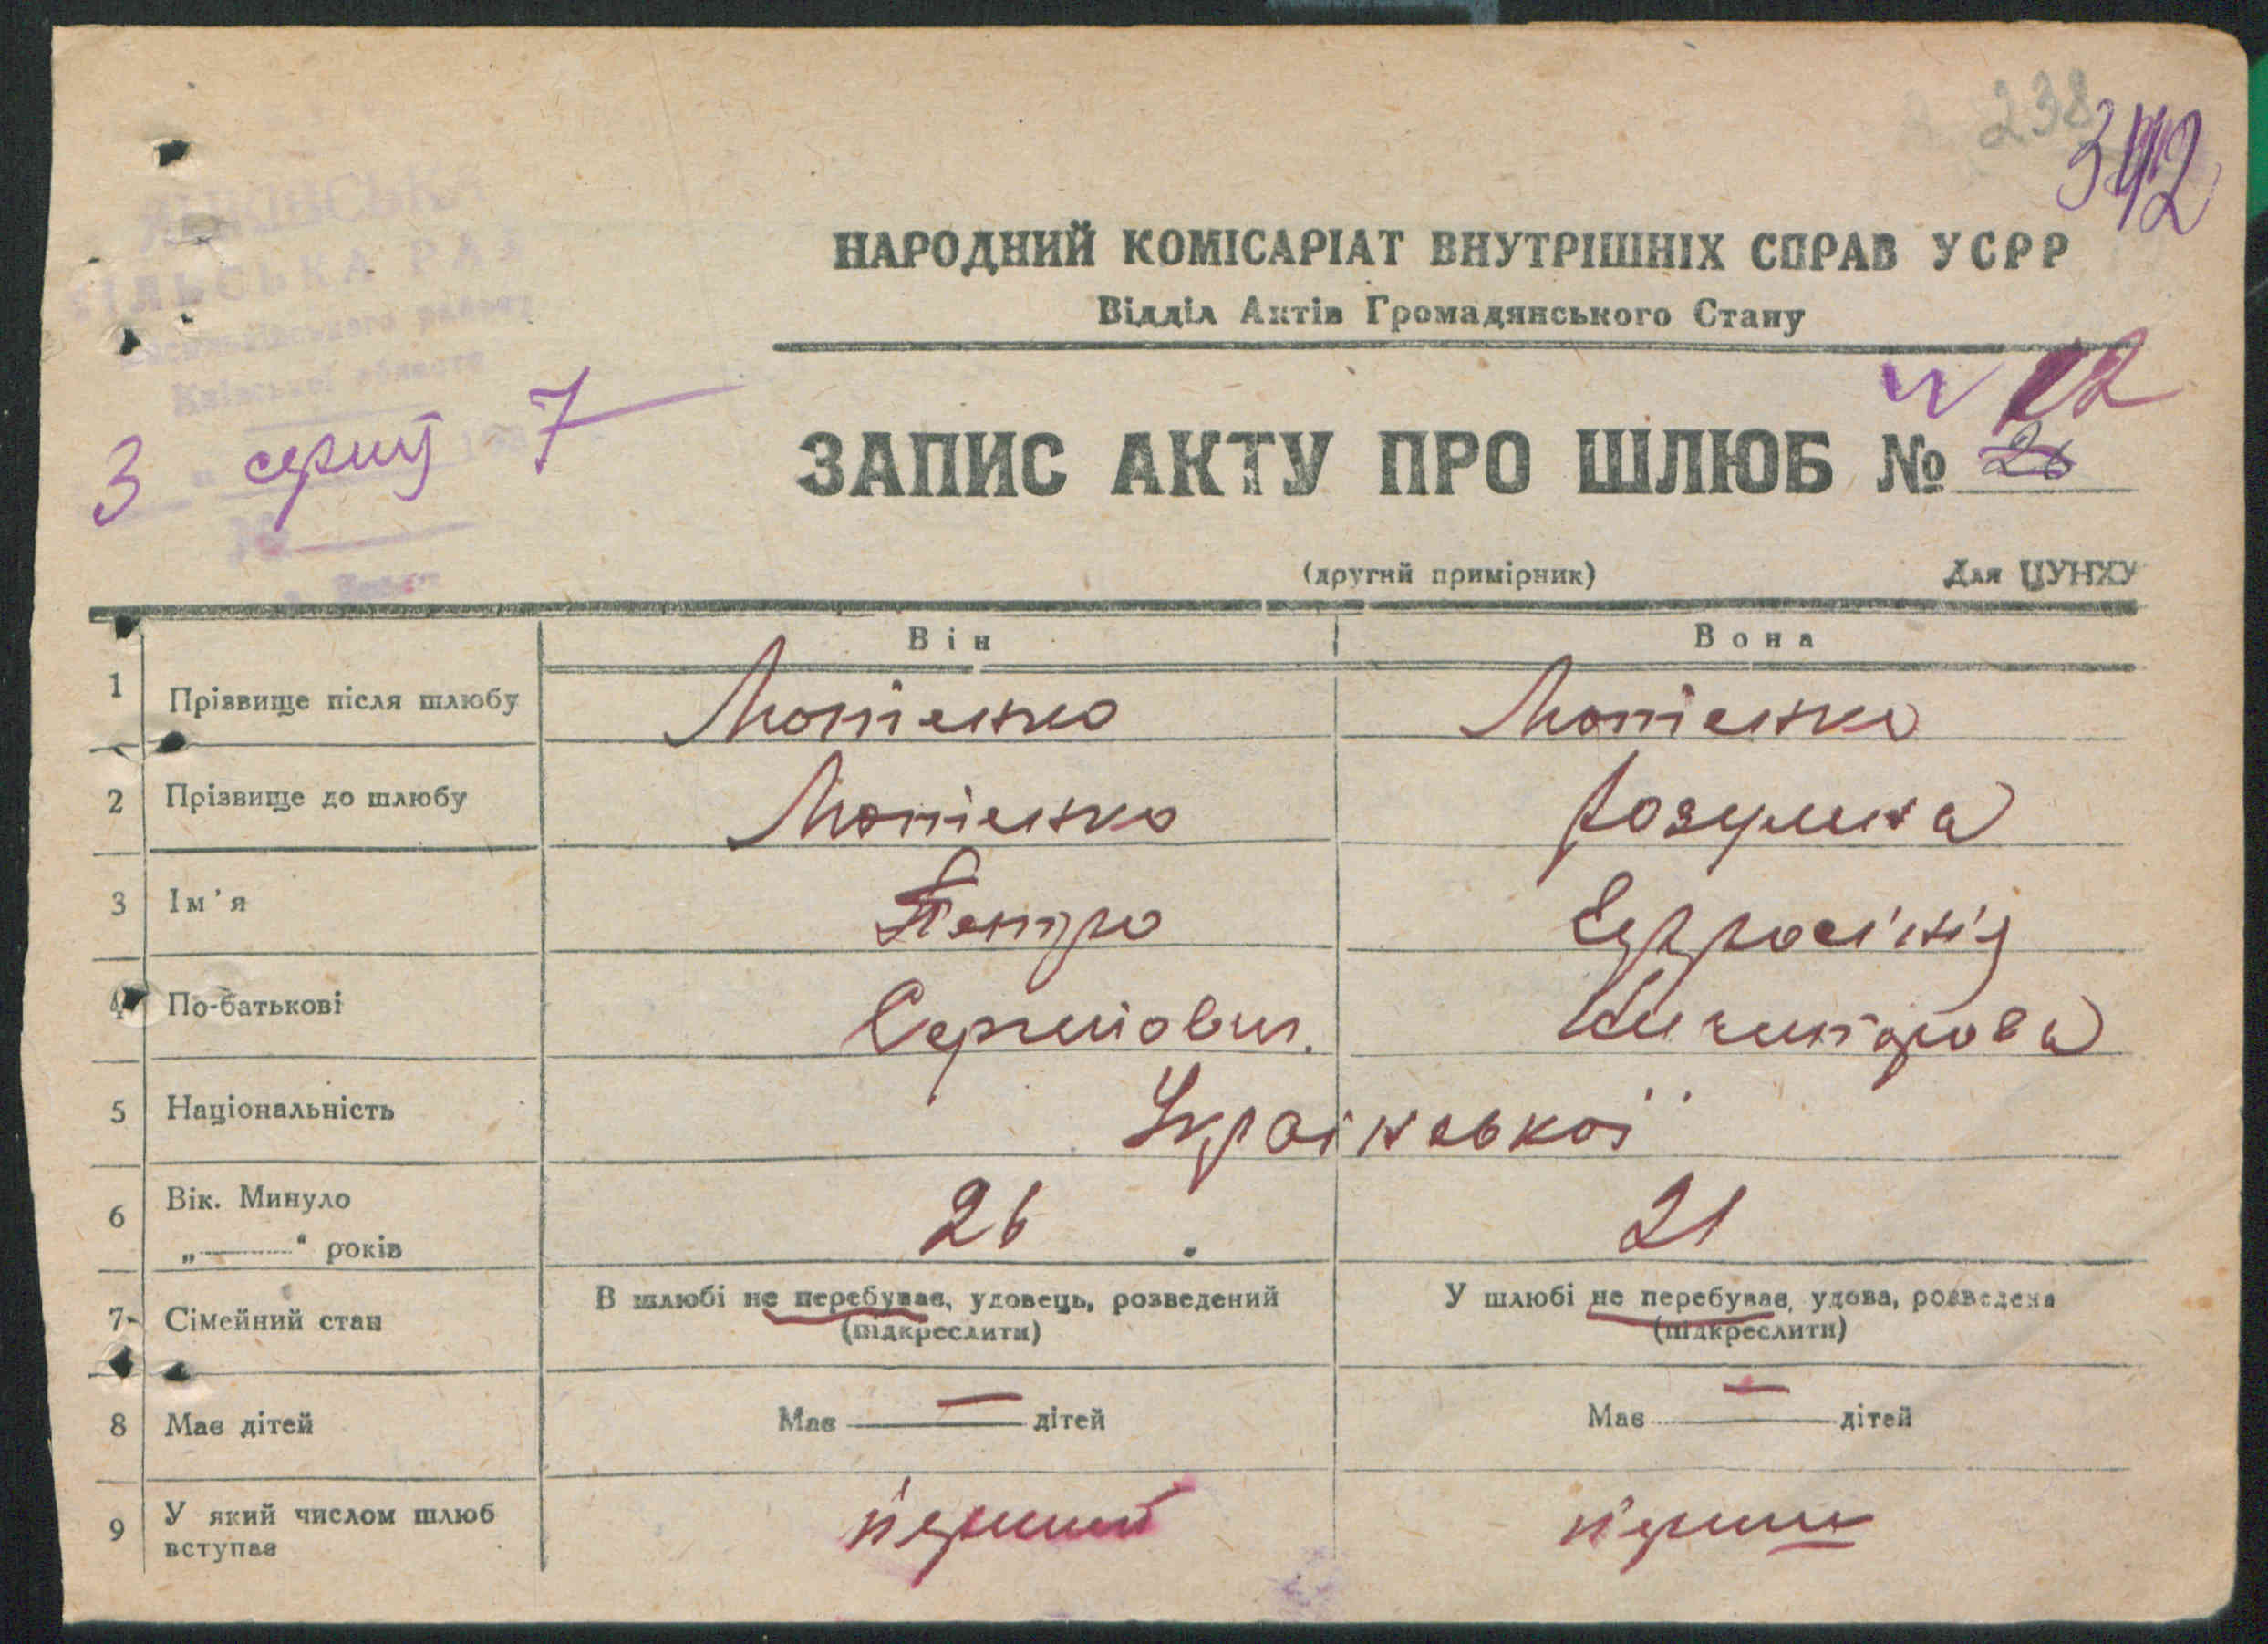 238
342
ЯНКІВСЬКА
СІЛЬСЬКА РАДА
Васильківського району
Київської області
НАРОДНИЙ КОМІСАРІАТ ВНУТРІШНІХ СПРАВ УСРР
Відділ Актів Громадянського Стану
3 серпн 7
22
ЗАПИС АКТУ ПРО ШЛЮБ № 26
(другий примірник) Для ЦУНХУ
Він Вона
1 Прізвище після шлюбу Мотієнко Мотієнко
2 Прізвище до шлюбу Мотієнко Розумна
3 Ім'я Петро Евфросінія
4 По-батькові Сергійович.
5 Національність Української
6 Вік. Минуло 26 21
„———" років
7 Сімейний стан В шлюбі не перебуває, удовець, розведений У шлюбі не перебуває, удова, розведена
(підкреслити) (підкреслити)
8 Має дітей Має — дітей Має — дітей
9 У який числом шлюб перший перший
вступає